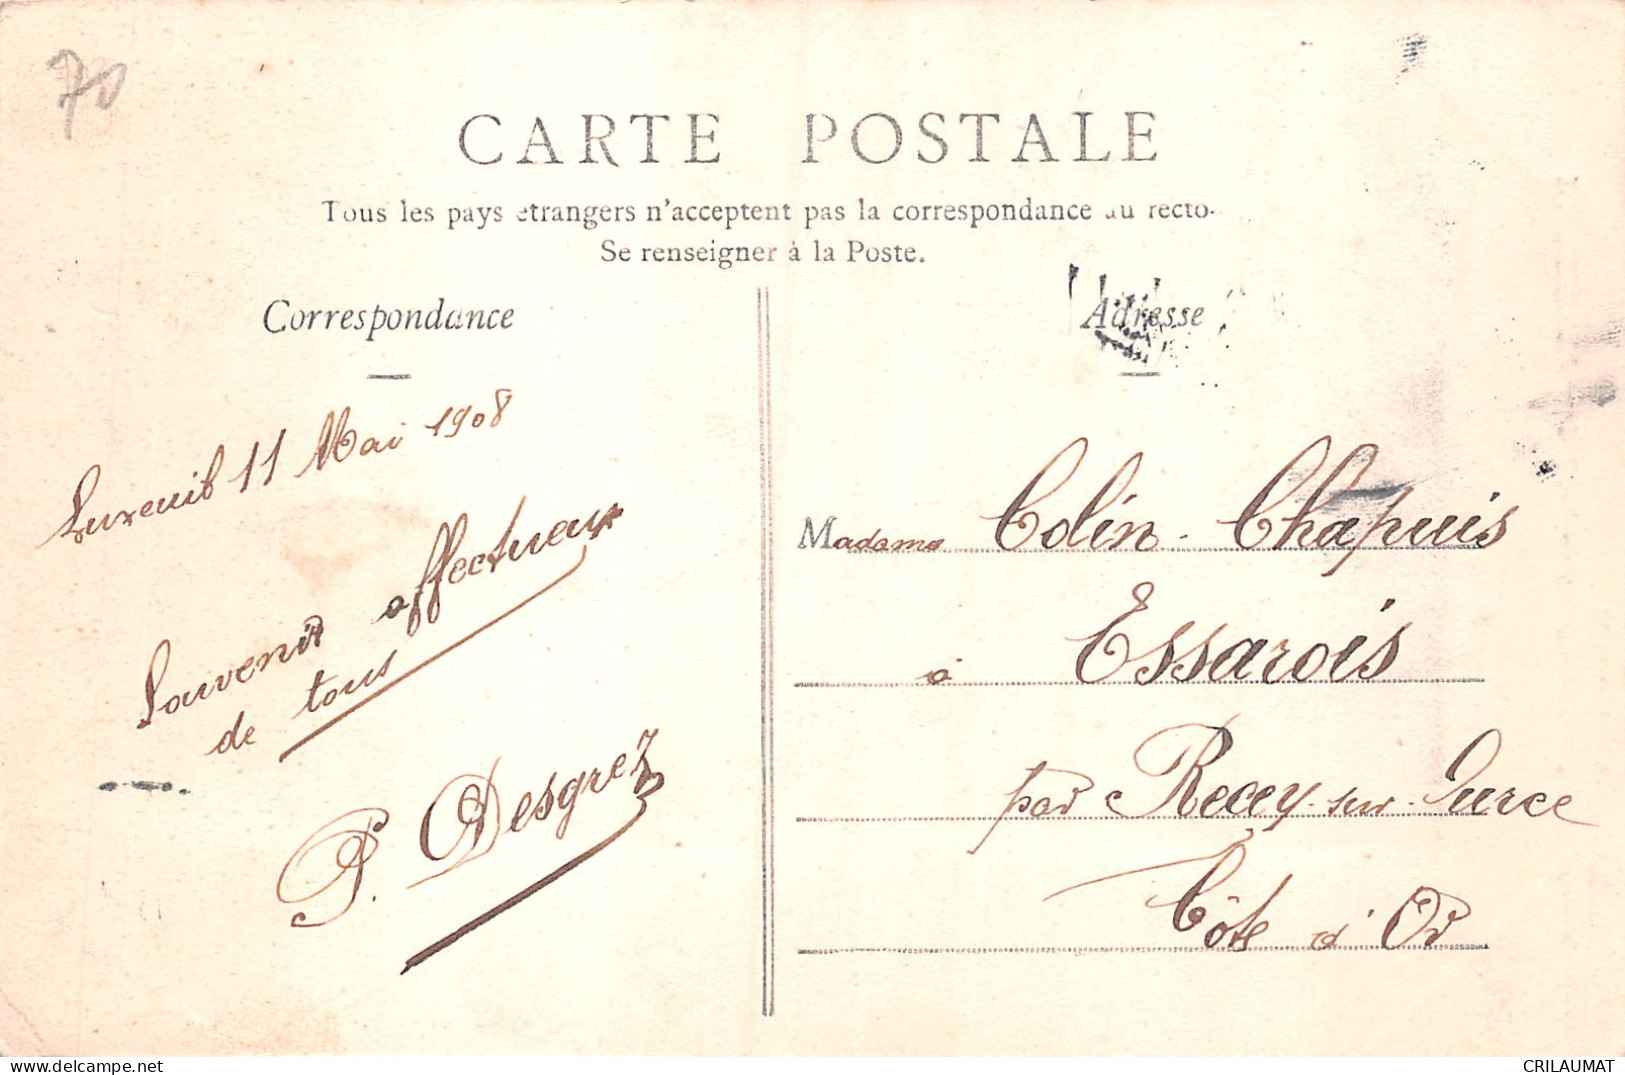 70
CARTE POSTALE
Tous les pays étrangers n'acceptent pas la correspondance au recto.
Se renseigner à la Poste.
Correspondance
Luxeuil 11 Mai 1908
Souvenir affectueux
de tous
P. Desgrez
Adresse
Madame Colin-Chapuis
à Essarois
par Recey-sur-Ource
Côte d'Or
www.delcampe.net
CRILAUMAT